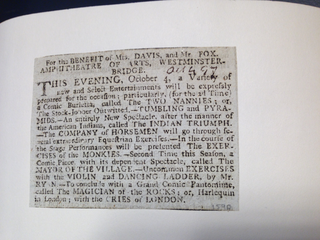 For the BENEFIT of Mrs. DAVIS, and Mr. FOX.
AMPHITHEATRE OF ARTS, WESTMINSTER-
BRIDGE.
THIS EVENING, October 4, a Variety of
new and Select Entertainments will be expressly
prepared for the occasion; particularly, (for the 2d Time)
a Comic Burletta, called The TWO NANNIES; or,
The Stock-Jobber Outwitted.—TUMBLING and PYRA-
MIDS.—An entirely New Spectacle, after the manner of
the American Indians, called The INDIAN TRIUMPH.
—The COMPANY of HORSEMEN will go through se-
veral extraordinary Equestrian Exercises.—In the course of
the Stage Performances will be presented The EXER-
CISES of the MONKIES.—Second Time this Season, a
Comic Piece, with its dependent Spectacle, called The
MAYOR OF THE VILLAGE.—Uncommon EXERCISES
with the VIOLIN and DANCING LADDER, by Mr.
—To conclude with a Grand Comic Pantomime,
called The MAGICIAN of the ROCKS; or, Harlequin
in London; with the CRIES of LONDON.